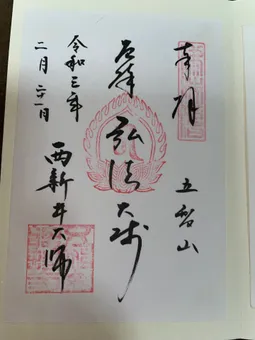 奉拝
五智山
厄除
弘法大師
西新井大師
令和三年
二月二十一日